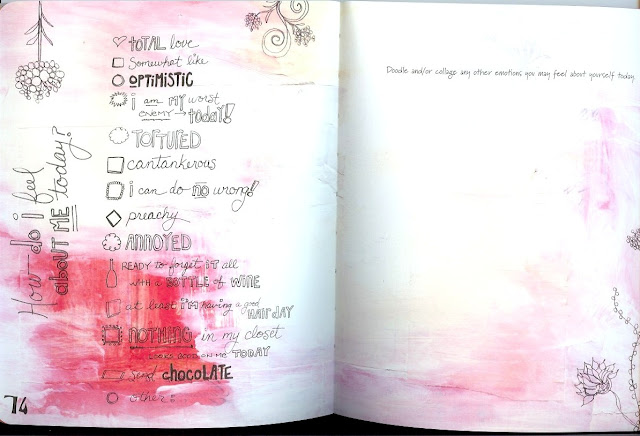 How do I feel
about ME today?
TOTAL love
Somewhat like
OPTIMISTIC
i am MY worst
ENEMY → today!
TORTURED
cantankerous
i can do no wrong!
preachy
ANNOYED
READY to forget IT all
with a BOTTLE of WINE
at least i'm having a good
HAIR DAY
NOTHING in my closet
LOOKS GOOD ON ME TODAY
i need chocolate
other:
74
Doodle and/or collage any other emotions you may feel about yourself today.